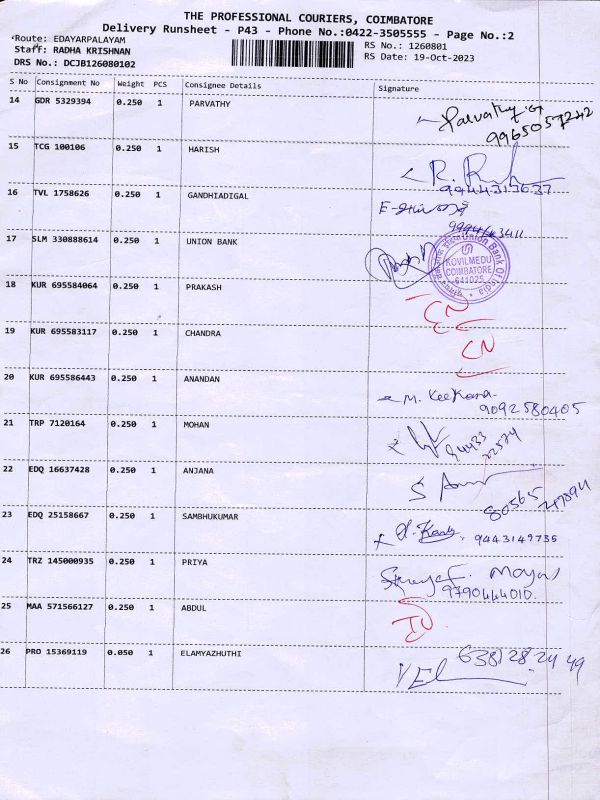 THE PROFESSIONAL COURIERS, COIMBATORE
Delivery Runsheet - P43 - Phone No.:0422-3505555 - Page No.:2
Route: EDAYARPALAYAM
RS No.: 1260801
Staff: RADHA KRISHNAN
RS Date: 19-Oct-2023
DRS No.: DCJB126080102
S No Consignment No Weight PCS Consignee Details Signature
14 GDR 5329394 0.250 1 PARVATHY Parvathy
9965057242
15 TCG 100106 0.250 1 HARISH R.
16 TVL 1758626 0.250 1 GANDHIADIGAL
17 SLM 330888614 0.250 1 UNION BANK
Union Bank Of India
KOVILMEDU
COIMBATORE
641025
18 KUR 695584064 0.250 1 PRAKASH CN
19 KUR 695583117 0.250 1 CHANDRA CN
20 KUR 695586443 0.250 1 ANANDAN M. Keekana
9092580405
21 TRP 7120164 0.250 1 MOHAN
94433
22574
22 EDQ 16637428 0.250 1 ANJANA S
80565
23 EDQ 25158667 0.250 1 SAMBHUKUMAR 9443149735
24 TRZ 145000935 0.250 1 PRIYA
9790444010.
25 MAA 571566127 0.250 1 ABDUL
26 PRO 15369119 0.050 1 ELAMYAZHUTHI 6381282449